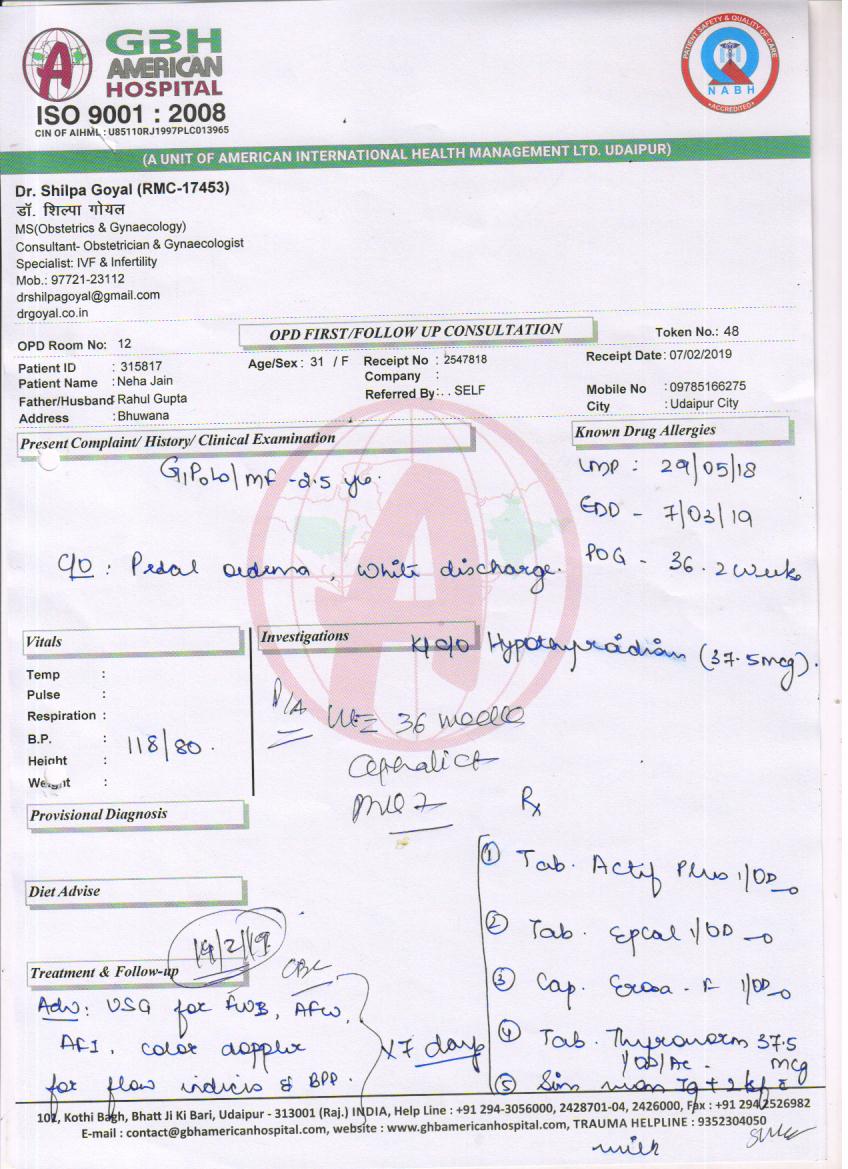 GBH
AMERICAN
HOSPITAL
ISO 9001 : 2008
CIN OF AIHML : U85110RJ1997PLC013965
PATIENT SAFETY & QUALITY OF CARE
NABH
ACCREDITED
(A UNIT OF AMERICAN INTERNATIONAL HEALTH MANAGEMENT LTD. UDAIPUR)
Dr. Shilpa Goyal (RMC-17453)
डॉ. शिल्पा गोयल
MS(Obstetrics & Gynaecology)
Consultant- Obstetrician & Gynaecologist
Specialist: IVF & Infertility
Mob.: 97721-23112
drshilpagoyal@gmail.com
drgoyal.co.in
OPD Room No: 12 OPD FIRST/FOLLOW UP CONSULTATION Token No.: 48
Patient ID : 315817 Age/Sex : 31 / F Receipt No : 2547818 Receipt Date: 07/02/2019
Patient Name : Neha Jain Company :
Father/Husband Rahul Gupta Referred By: . . SELF Mobile No : 09785166275
Address : Bhuwana City : Udaipur City
Present Complaint/ History/ Clinical Examination Known Drug Allergies
G1P0L0/ MF -2.5 yrs. LMP : 29/05/18
EDD - 7/03/19
C/O : Pedal oedema, white discharge. POG - 36.2 weeks
Vitals Investigations K/c/o Hypothyroidism (37.5mcg).
Temp :
Pulse :
Respiration :
B.P. : 118/80.
Height :
Weight :
P/A
36 weeks
Cephalic
Provisional Diagnosis
Rx
① Tab. Actif Plus 1/OD
Diet Advise
② Tab. Epcal 1/OD
19/2/19
Treatment & Follow-up CBC
③ Cap. - F 1/OD
Adv: USG for FWB, AFW,
AFI, color doppler x 7 days
for flow indicis & BPP.
④ Tab. Thyronorm 37.5 mcg
1/OD/AC.
⑤ 7g + 2
milk
102, Kothi Bagh, Bhatt Ji Ki Bari, Udaipur - 313001 (Raj.) INDIA, Help Line : +91 294-3056000, 2428701-04, 2426000, Fax : +91 294 2526982
E-mail : contact@gbhamericanhospital.com, website : www.ghbamericanhospital.com, TRAUMA HELPLINE : 9352304050